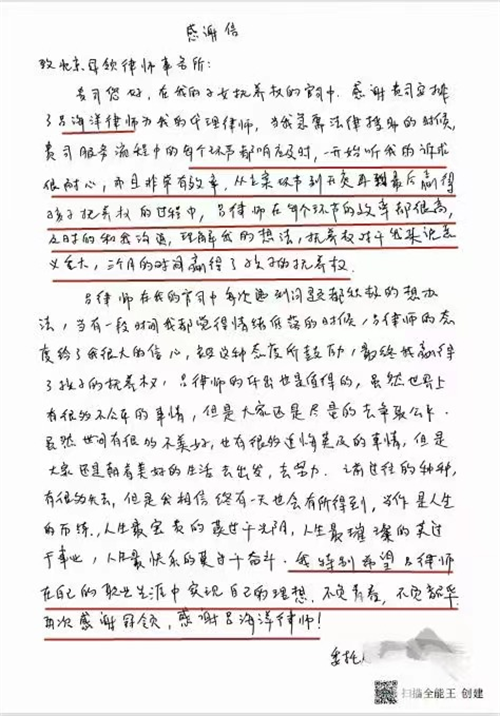 感谢信
致北京冠领律师事务所:
贵司您好,在我的子女抚养权的官司中,感谢贵司安排
了吕海洋律师为我的代理律师,当我急需法律援助的时候,
贵司服务流程中的每个环节都响应及时,一开始听我的诉求
很耐心,而且非常有效率,从立案环节到开庭再到最后赢得
孩子抚养权的过程中,吕律师在每个环节的效率都很高,
及时的和我沟通,理解我的想法,抚养权对于我来说意
义重大,三个月的时间赢得了孩子的抚养权.
吕律师在我的官司中多次遇到问题都积极的想办
法,当有一段时间我都觉得情绪低落的时候,吕律师的态
度给了我很大的信心,被这种态度所鼓励,最终我赢得
了孩子的抚养权,吕律师的付出也是值得的,虽然世界上
有很多不公平的事情,但是大家还是尽量的去争取公平.
虽然世间有很多的不美好,也有很多追悔莫及的事情,但是
大家还是朝着美好的生活去出发,去努力.诸过往的种种,
有很多失去,但是我相信终有一天也会有所得到,当作是人生
的历练,人生最宝贵的莫过于光阴,人生最璀璨的莫过
于事业,人生最快乐的莫过于奋斗.我特别希望吕律师
在自己的职业生涯中实现自己的理想.不负青春,不负韶华.
再次感谢冠领,感谢吕海洋律师!
委托人
扫描全能王 创建